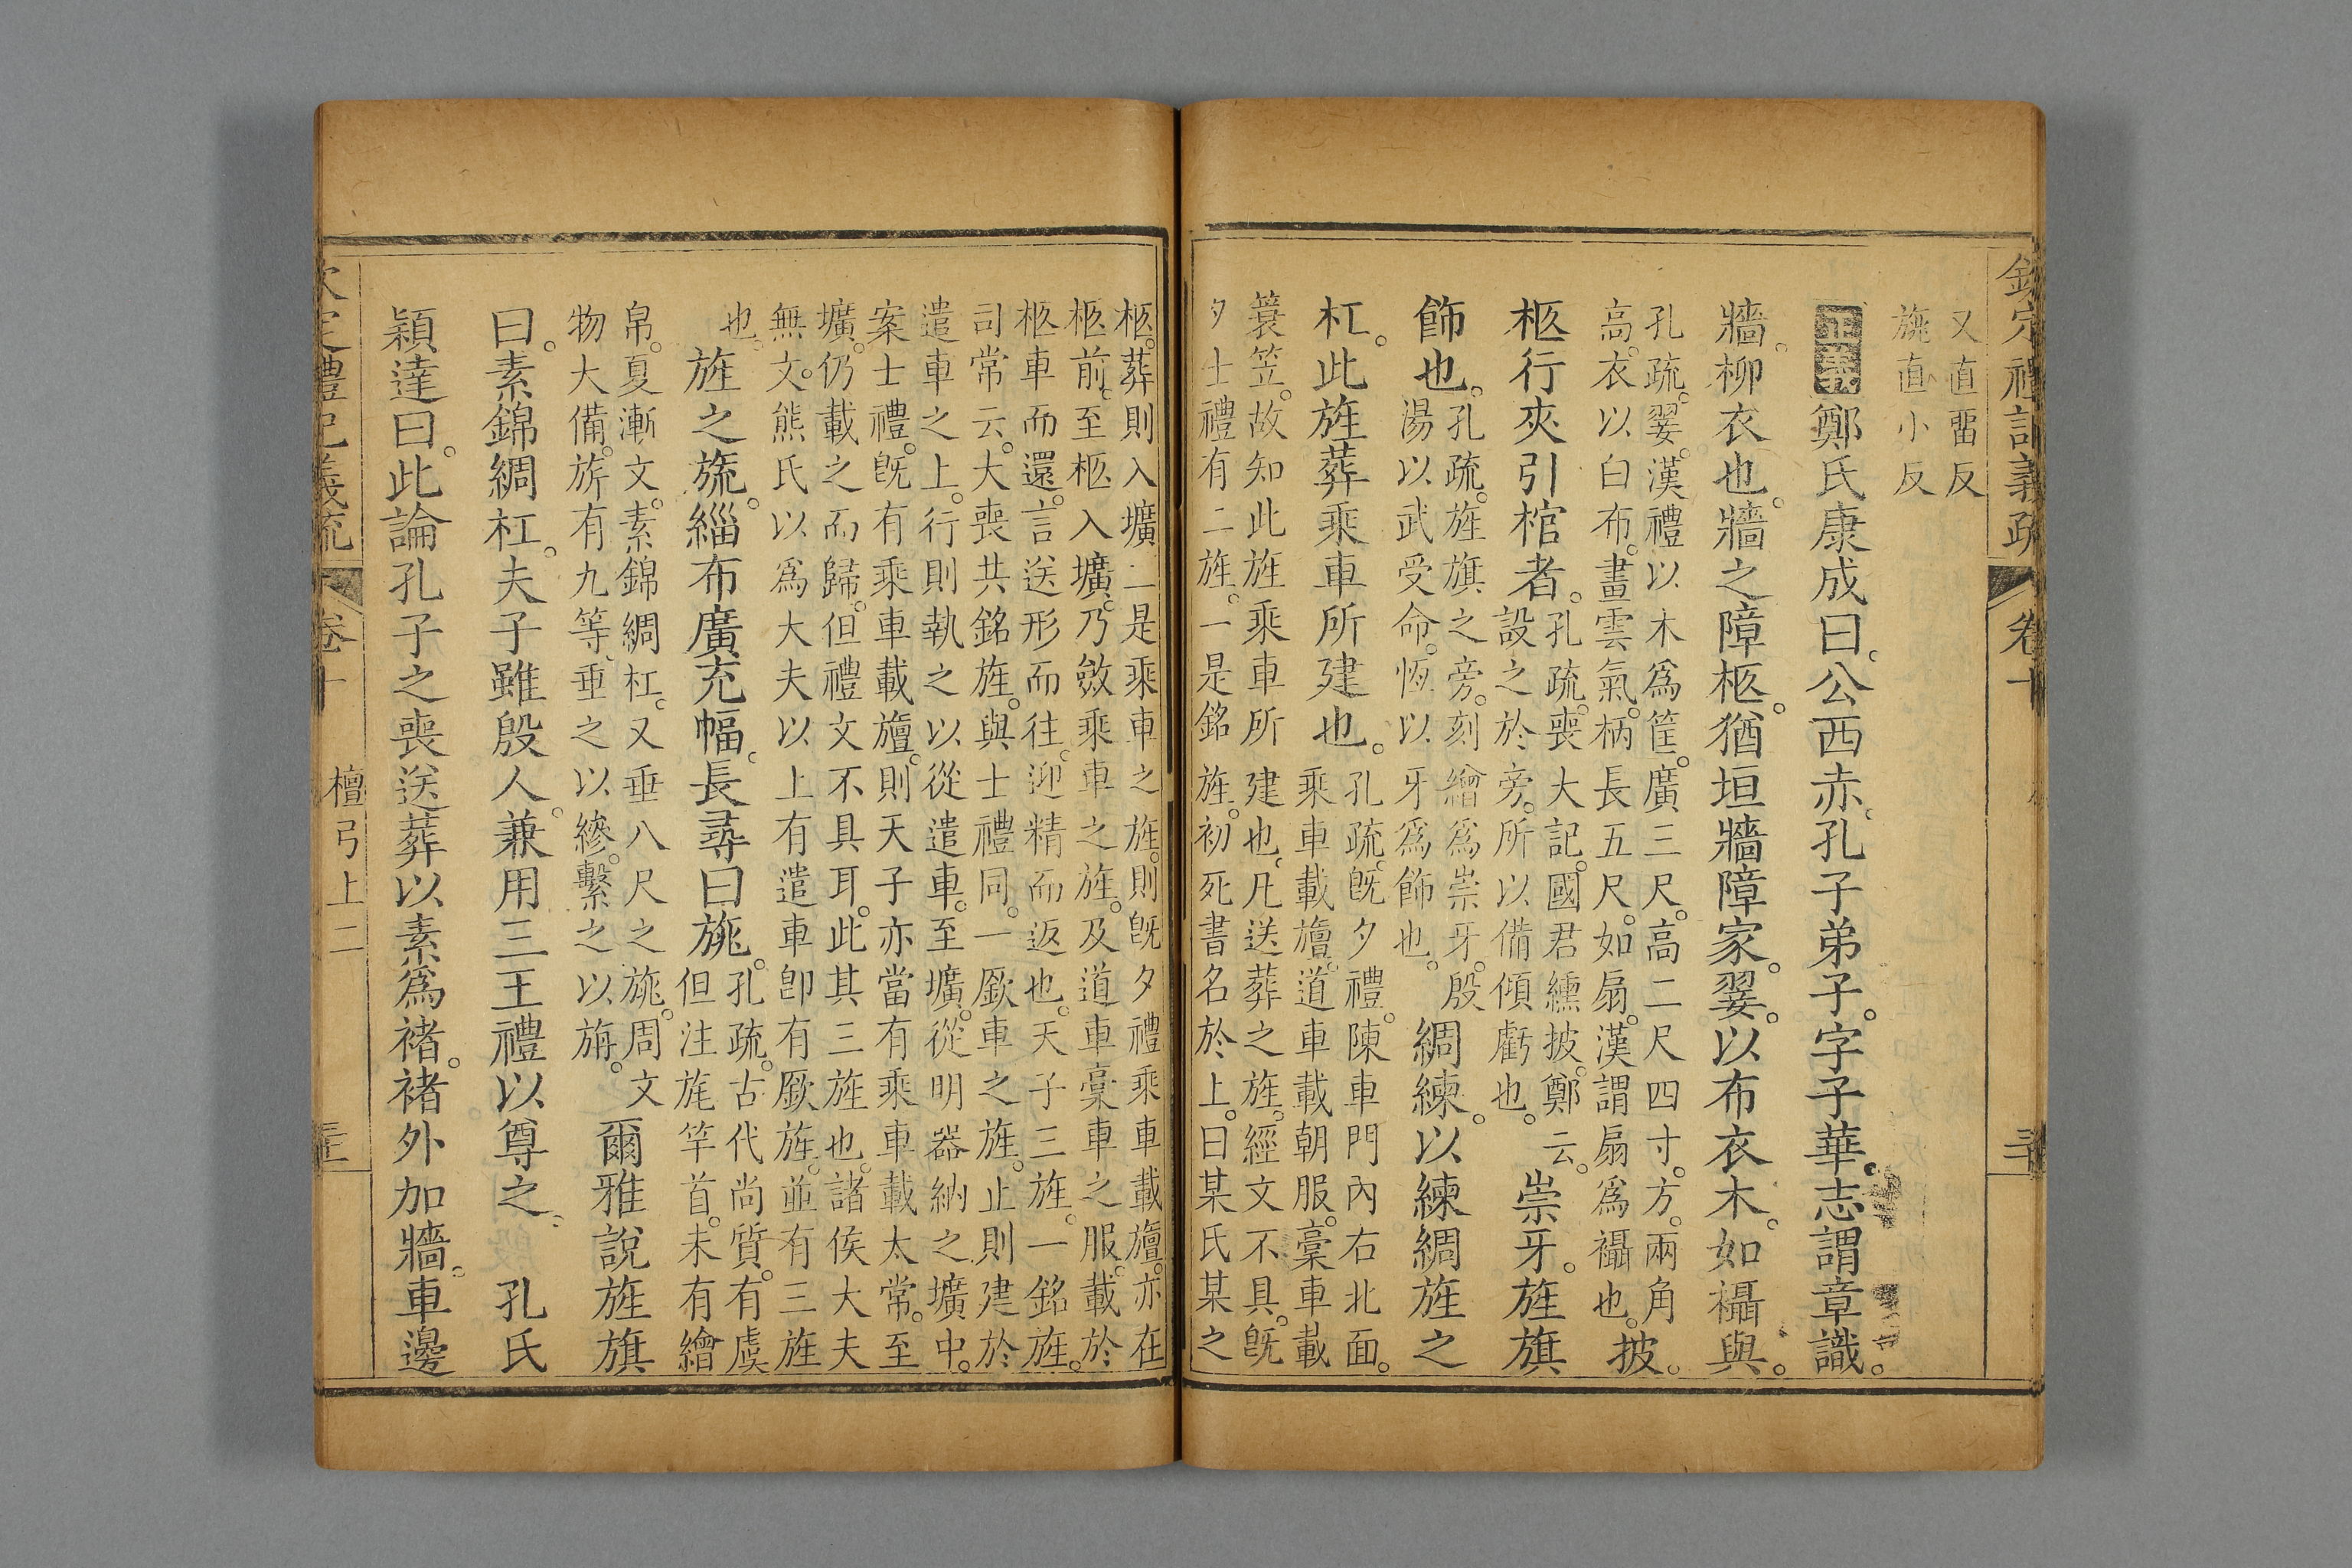 欽定禮記義疏 卷十
又直雷反
旐直小反
正義鄭氏康成曰。公西赤。孔子弟子。字子華。志謂章識。
牆。柳衣也。牆之障柩。猶垣牆障家。翣。以布衣木。如襵與。
孔疏。翣。漢禮以木爲筐。廣三尺。高二尺四寸。方。兩角
高。衣以白布。畫雲氣。柄長五尺。如扇。漢謂扇爲襵也。披。
柩行夾引棺者。孔疏。喪大記。國君纁披。鄭云。
設之於旁。所以備傾虧也。崇牙。旌旗
飾也。孔疏。旌旗之旁。刻繒爲崇牙。殷
湯以武受命。恆以牙爲飾也。綢練。以練綢旌之
杠。此旌葬乘車所建也。孔疏。旣夕禮。陳車門內右北面。
乘車載旜。道車載朝服。槀車載
簑笠。故知此旌乘車所建也。凡送葬之旌。經文不具。旣
夕士禮有二旌。一是銘旌。初死書名於上。曰某氏某之
柩。葬則入壙。二是乘車之旌。則旣夕禮乘車載旜。亦在
柩前。至柩入壙。乃斂乘車之旌。及道車槀車之服。載於
柩車而還。言送形而往。迎精而返也。天子三旌。一銘旌。
司常云。大喪共銘旌。與士禮同。一廞車之旌。止則建於
遣車之上。行則執之以從遣車。至壙。從明器納之壙中。
案士禮。旣有乘車載旜。則天子亦當有乘車載太常。至
壙。仍載之而歸。但禮文不具耳。此其三旌也。諸侯大夫
無文。熊氏以爲大夫以上有遣車卽有廞旌。並有三旌
也。旌之旒。緇布廣充幅。長尋曰旐。孔疏。古代尚質。有虞
但注旄竿首。未有繒
帛。夏漸文。素錦綢杠。又垂八尺之旐。周文
物大備。旂有九等。垂之以縿。繫之以旃。爾雅說旌旗
曰。素錦綢杠。夫子雖殷人。兼用三王禮以尊之。 孔氏
穎達曰。此論孔子之喪送葬以素爲褚。褚外加牆。車邊
欽定禮記義疏 卷十 檀弓上二